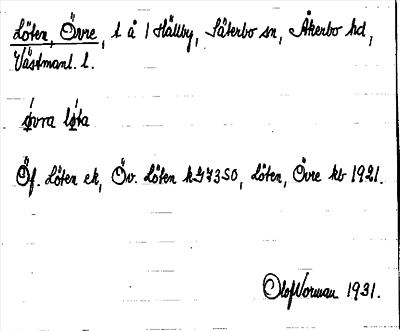 Löten, Övre, t å 1 Hällby, Säterbo sn, Åkerbo hd,
Västmanl. l.
ǿvra lǿta
Öf. Löten ek, Öv. Löten kSO, Löten, Övre kb 1921.
Olof Norman 1931.